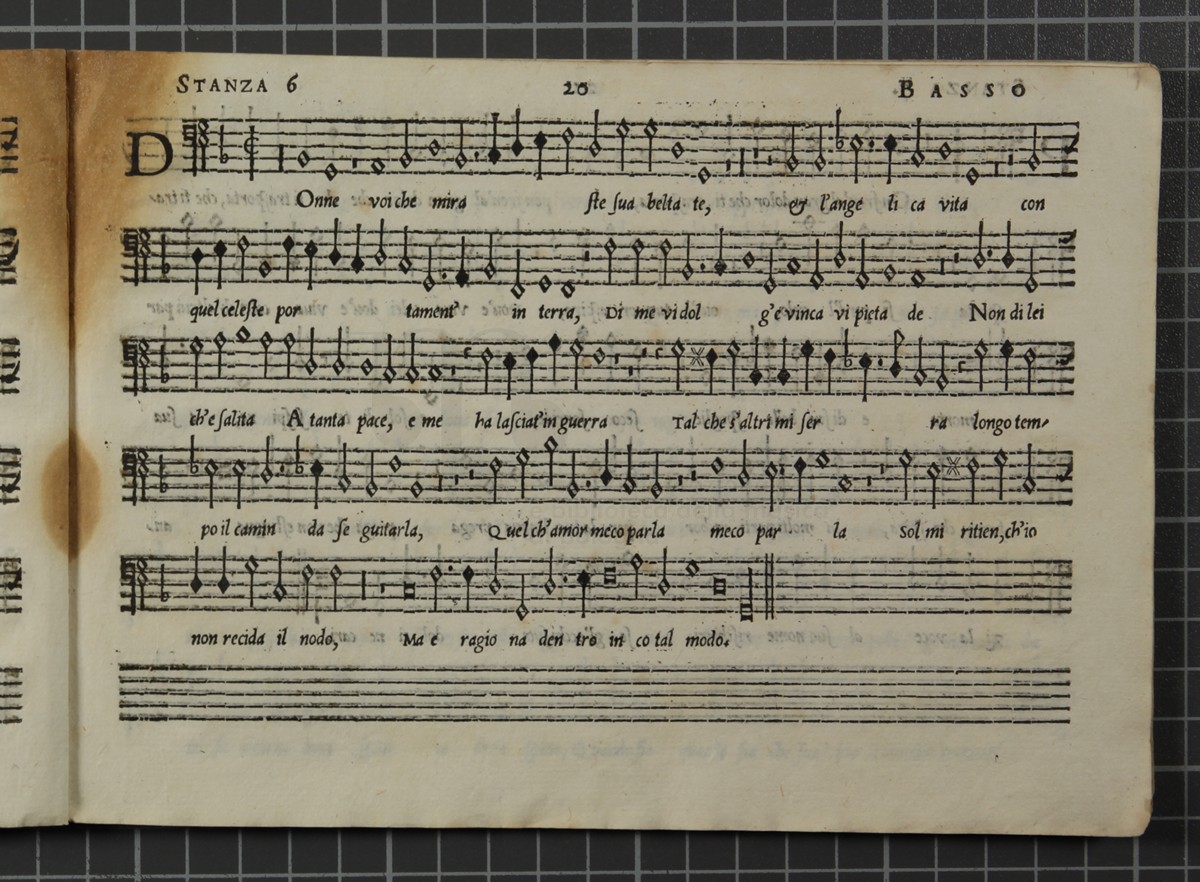 STANZA 6 20 BASSO
DOnne voi che mira ste sua belta te, & l'ange li ca vita con
quel celeste por tament' in terra, Di me vi dol g'e vinca vi pieta de Non di lei
ch'e salita A tanta pace, e me ha lasciat' in guerra Tal che s'altri mi ser ra longo tem-
po il camin da se guitarla, Quel ch'amor meco parla meco par la Sol mi ritien, ch'io
non recida il nodo, Ma e ragio na den tro in co tal modo.